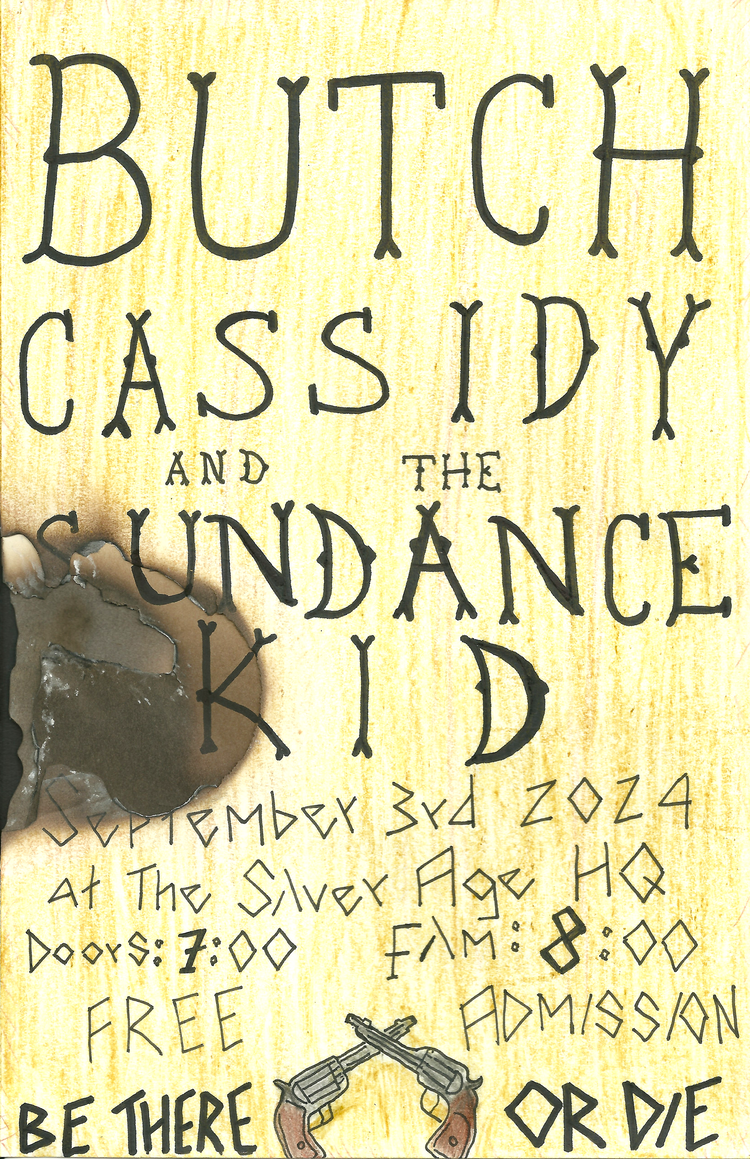 BUTCH
CASSIDY
AND THE
SUNDANCE
KID
September 3rd 2024
at The Silver Age HQ
Doors: 7:00 Film: 8:00
FREE ADMISSION
BE THERE OR DIE